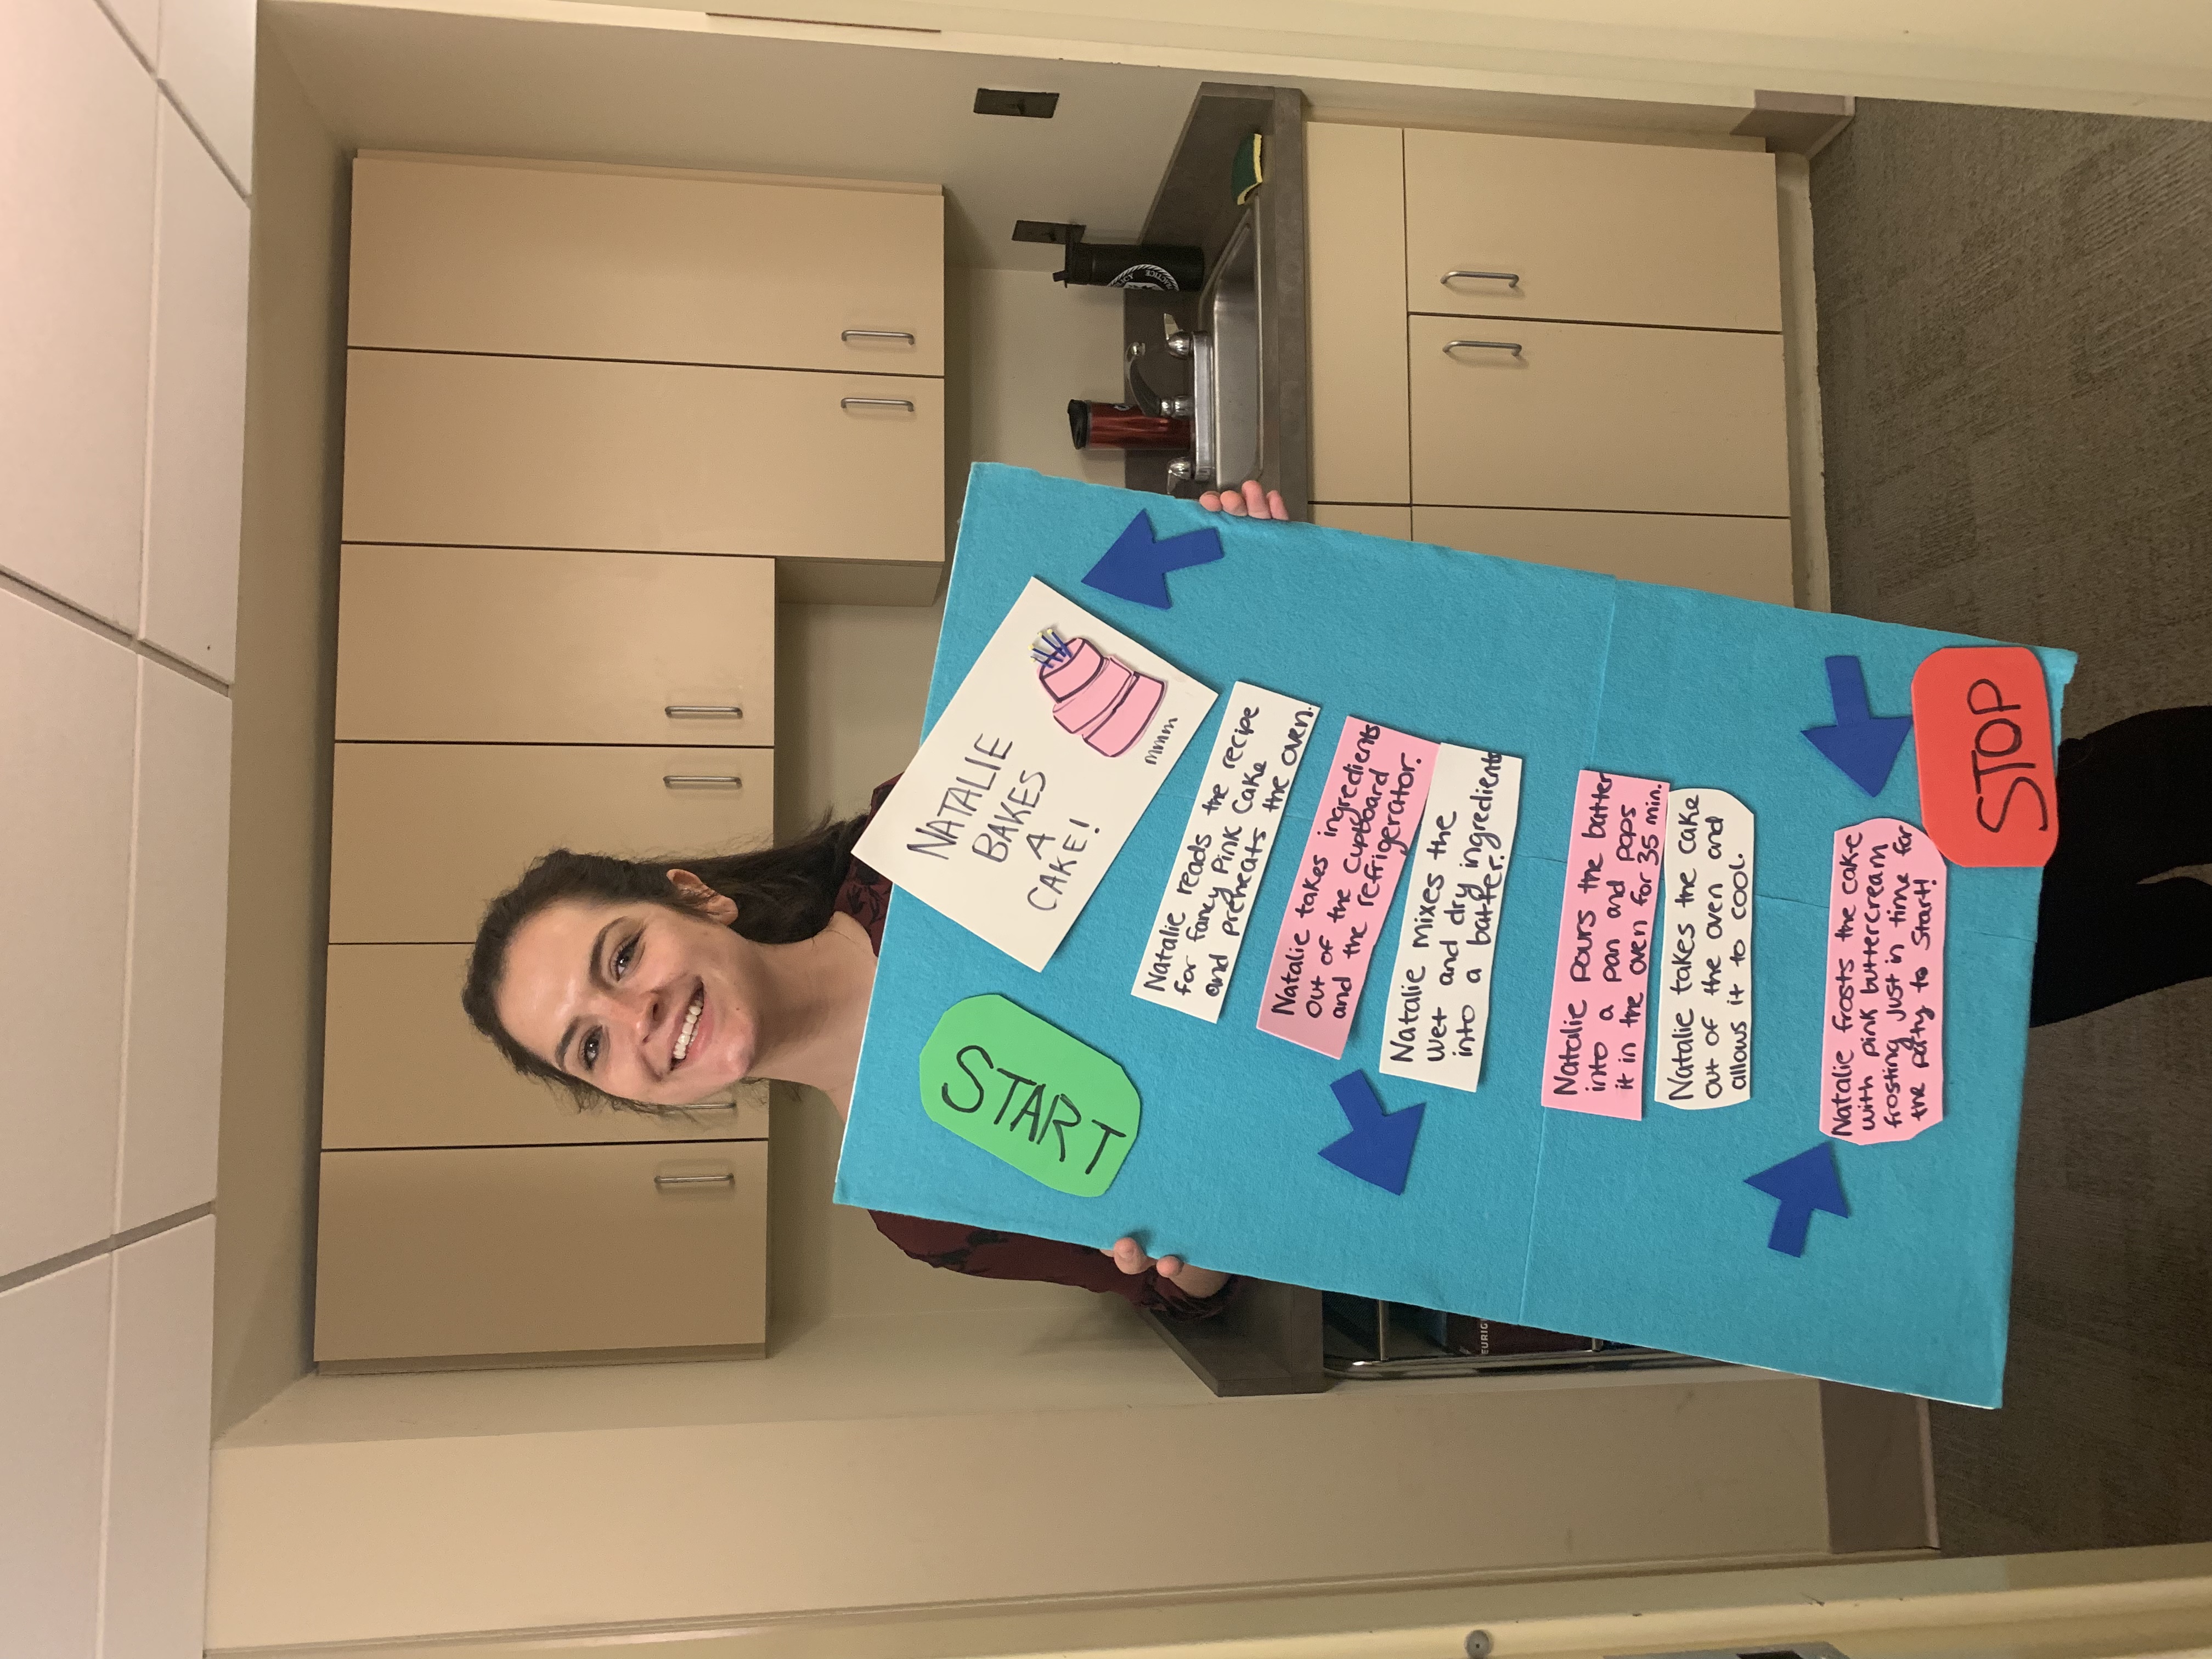 START
NATALIE
BAKES
A
CAKE!
mmm
Natalie reads the recipe
for fancy Pink Cake
and preheats the oven.
Natalie takes ingredients
out of the cupboard
and the refrigerator.
Natalie mixes the
wet and dry ingredients
into a batter.
Natalie pours the batter
into a pan and pops
it in the oven for 35 min.
Natalie takes the cake
out of the oven and
allows it to cool.
Natalie frosts the cake
with pink buttercream
frosting just in time for
the party to start!
STOP
PRACTICE